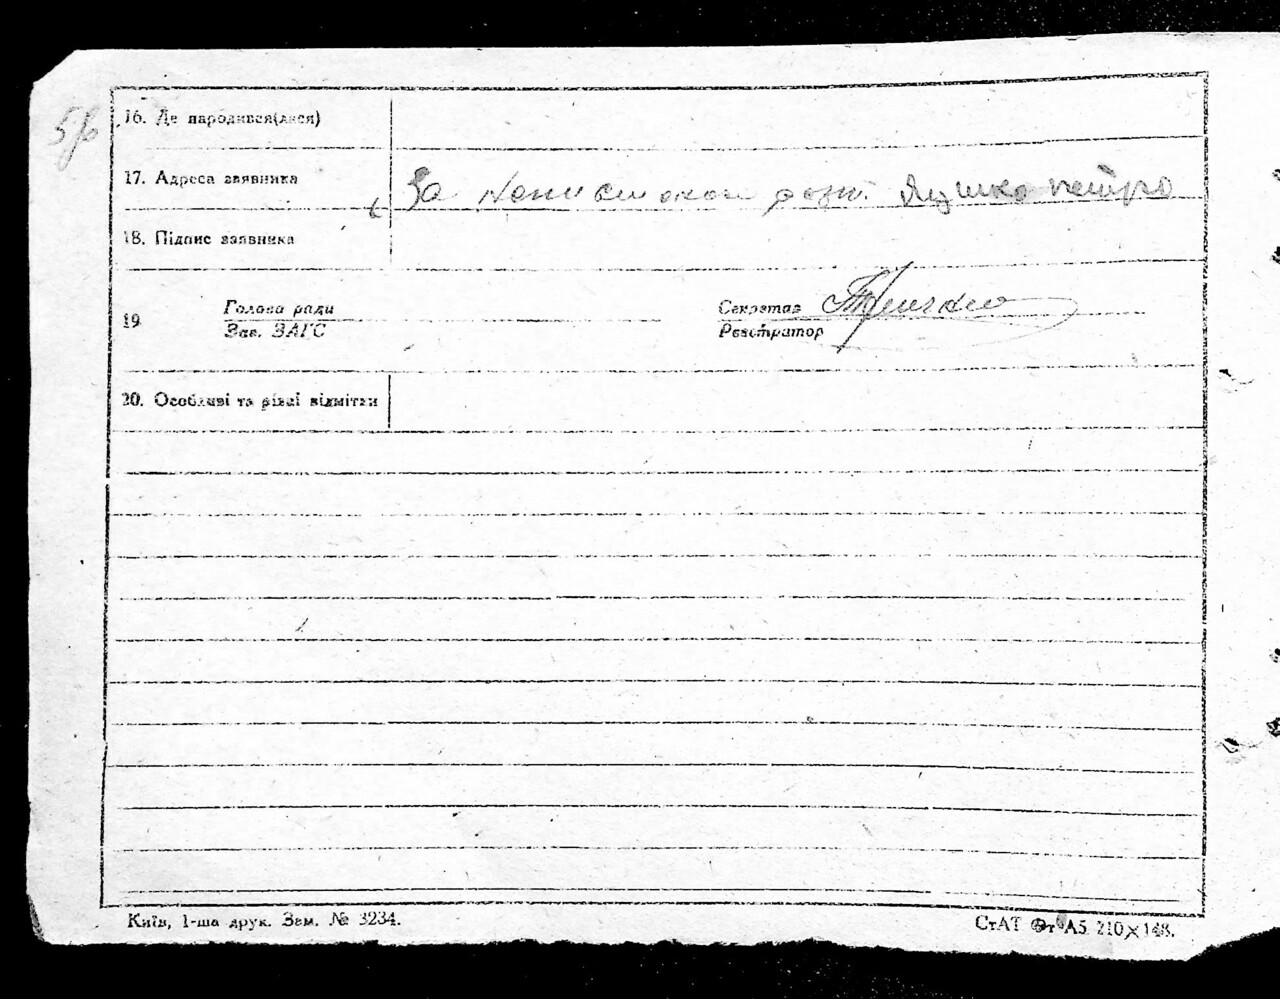 16. Де народився(лася)
17. Адреса заявника За розп. Яцико Петро
18. Підпис заявника
19 Голова ради Секретар
Зав. ЗАГС Реєстратор
20. Особливі та різні відмітки
Київ, 1-ша друк. Зам. № 3234.
СтАТ Фт А5 210×148.